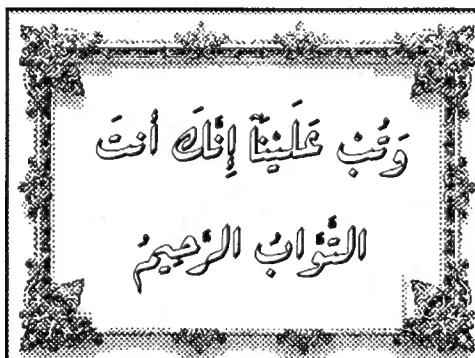 وَتُبْ عَلَيْنَآ إِنَّكَ أَنتَ
التَّوَّابُ الرَّحِيمُ